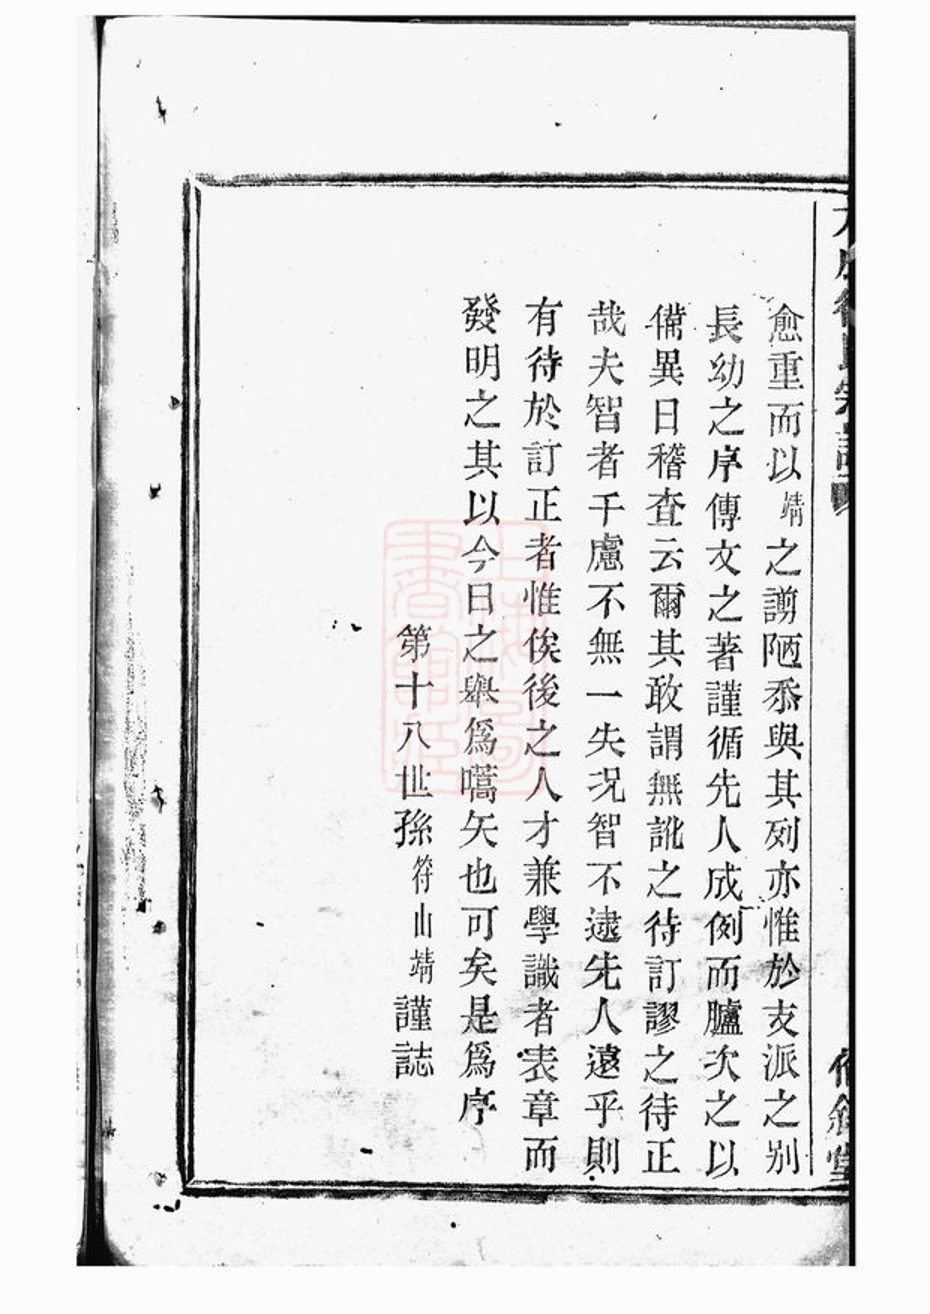 愈重而以靖之謭陋忝與其列亦惟於支派之别
長幼之序傳文之著謹循先人成例而臚次之以
備異日稽查云爾其敢謂無訛之待訂謬之待正
哉夫智者千慮不無一失况智不逮先人遠乎則
有待於訂正者惟俟後之人才兼學識者表章而
發明之其以今日之舉爲嚆矢也可矣是爲序
第十八世孫符山靖謹誌